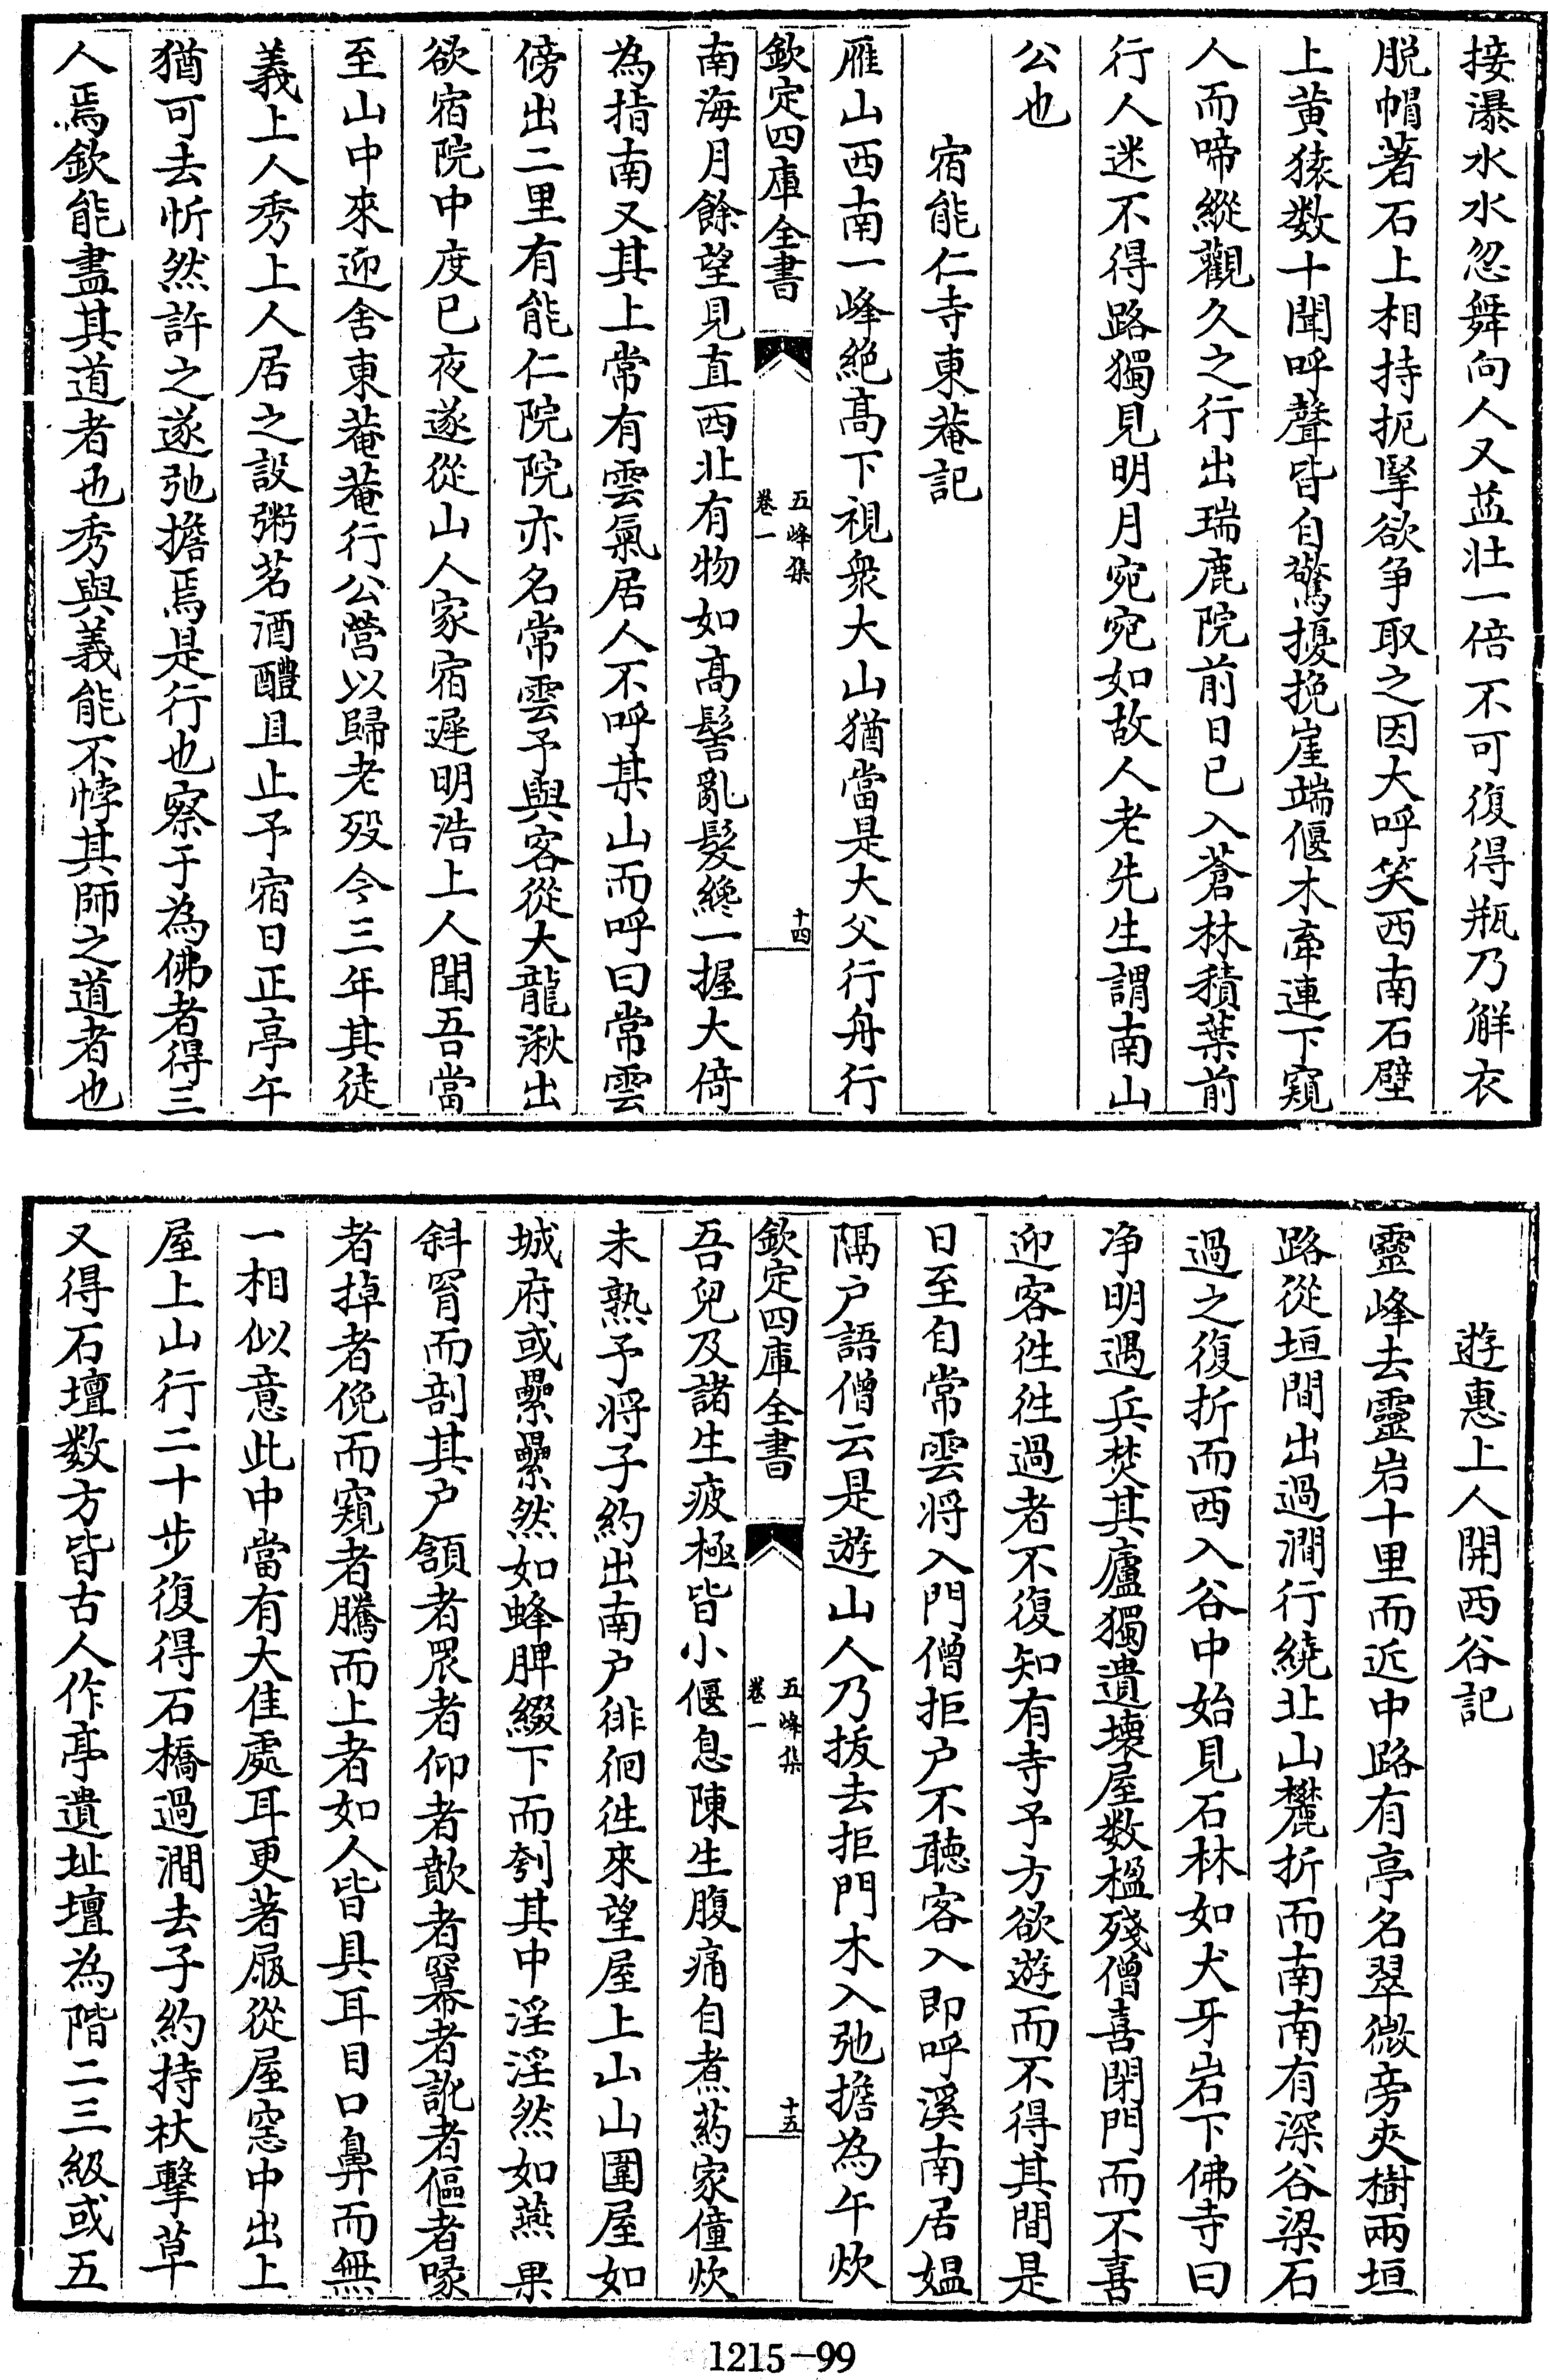 接瀑水水忽舞向人又益壮一倍不可復得瓶乃觧衣
脱帽著石上相持扼掔欲争取之因大呼笑西南石壁
上黄猿数十聞呼聲皆自驚擾挽崖端偃木牽連下窺
人而啼縱觀久之行出瑞鹿院前日已入蒼林積葉前
行人迷不得路獨見明月宛宛如故人老先生謂南山
公也
宿能仁寺東菴記
雁山西南一峰絶髙下視衆大山猶當是大父行舟行
欽定四庫全書
五峰集
卷一
十四
南海月餘望見直西北有物如髙髻亂髮纔一握大倚
為指南又其上常有雲氣居人不呼某山而呼曰常雲
傍出二里有能仁院院亦名常雲予與客從大龍湫出
欲宿院中度已夜遂從山人家宿遲明浩上人聞吾當
至山中來迎舍東菴菴行公營以歸老殁今三年其徒
義上人秀上人居之設粥茗酒醴且止予宿日正亭午
猶可去忻然許之遂弛擔焉是行也察于為佛者得三
人焉欽能盡其道者也秀與義能不悖其師之道者也
遊惠上人開西谷記
靈峰去靈岩十里而近中路有亭名翠微旁夾樹兩垣
路從垣間出過澗行繞北山麓折而南南有深谷梁石
過之復折而西入谷中始見石林如犬牙岩下佛寺曰
净明遇兵焚其廬獨遺壊屋数楹殘僧喜閉門而不喜
迎客徃徃過者不復知有寺予方欲遊而不得其間是
日至自常雲将入門僧拒户不聽客入即呼溪南居媪
隔户語僧云是遊山人乃㧞去拒門木入弛擔為午炊
欽定四庫全書
五峰集
卷一
十五
吾兒及諸生疲極皆小偃息陳生腹痛自煮葯家僮炊
未熟予将子約出南户徘徊徃來望屋上山山圍屋如
城府或纍纍然如蜂脾綴下而刳其中淫淫然如燕果
斜窅而剖其户頷者罛者仰者歕者冪者訛者傴者喙
者掉者俛而窺者騰而上者如人皆具耳目口鼻而無
一相似意此中當有大佳處耳更著屐從屋窓中出上
屋上山行二十步復得石橋過澗去子約持杖擊草
又得石壇数方皆古人作亭遺址壇為階二三級或五
1215-99